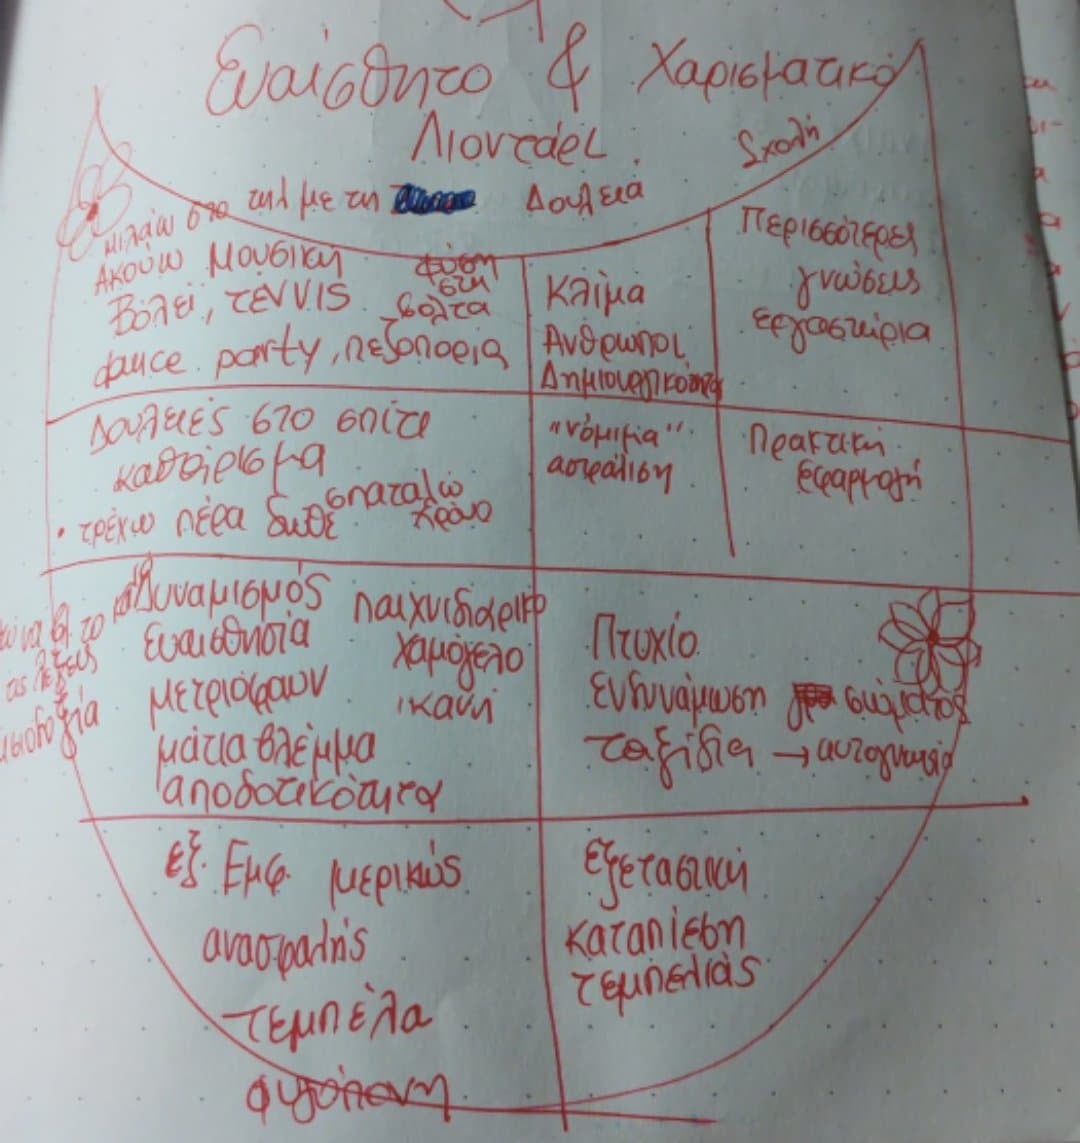 Ευαίσθητο & Χαρισματικό
Λιοντάρι.
Σχολή
μιλάω στο τηλ με τη
Δουλειά
Ακούω Μουσική
φύση
στη
Βόλεϊ, τέννις
βόλτα
dance party, πεζοπορία
Κλίμα
Ανθρωποι
Δημιουργικότητα
Περισσότερες
γνώσεις
εργαστήρια
Δουλειές στο σπίτι
καθάρισμα
σπαταλώ
• τρέχω πέρα δωθε
χρόνο
"νόμιμα"
ασφάλιση
Πρακτική
εφαρμογή
Δυναμισμός
παιχνιδιάρικο
Ευαισθησία
χαμόγελο
μετριόφρων
ικανή
μάτια βλέμμα
αποδοτικότητα
να
το
τις λέξεις
Πτυχίο
ενδυνάμωση σώματος
ταξίδια → αυτογνωσία
εξ. Εμφ. μερικώς
ανασφαλής
τεμπέλα
φυγόπονη
εξεταστική
καταπίεση
τεμπελιάς